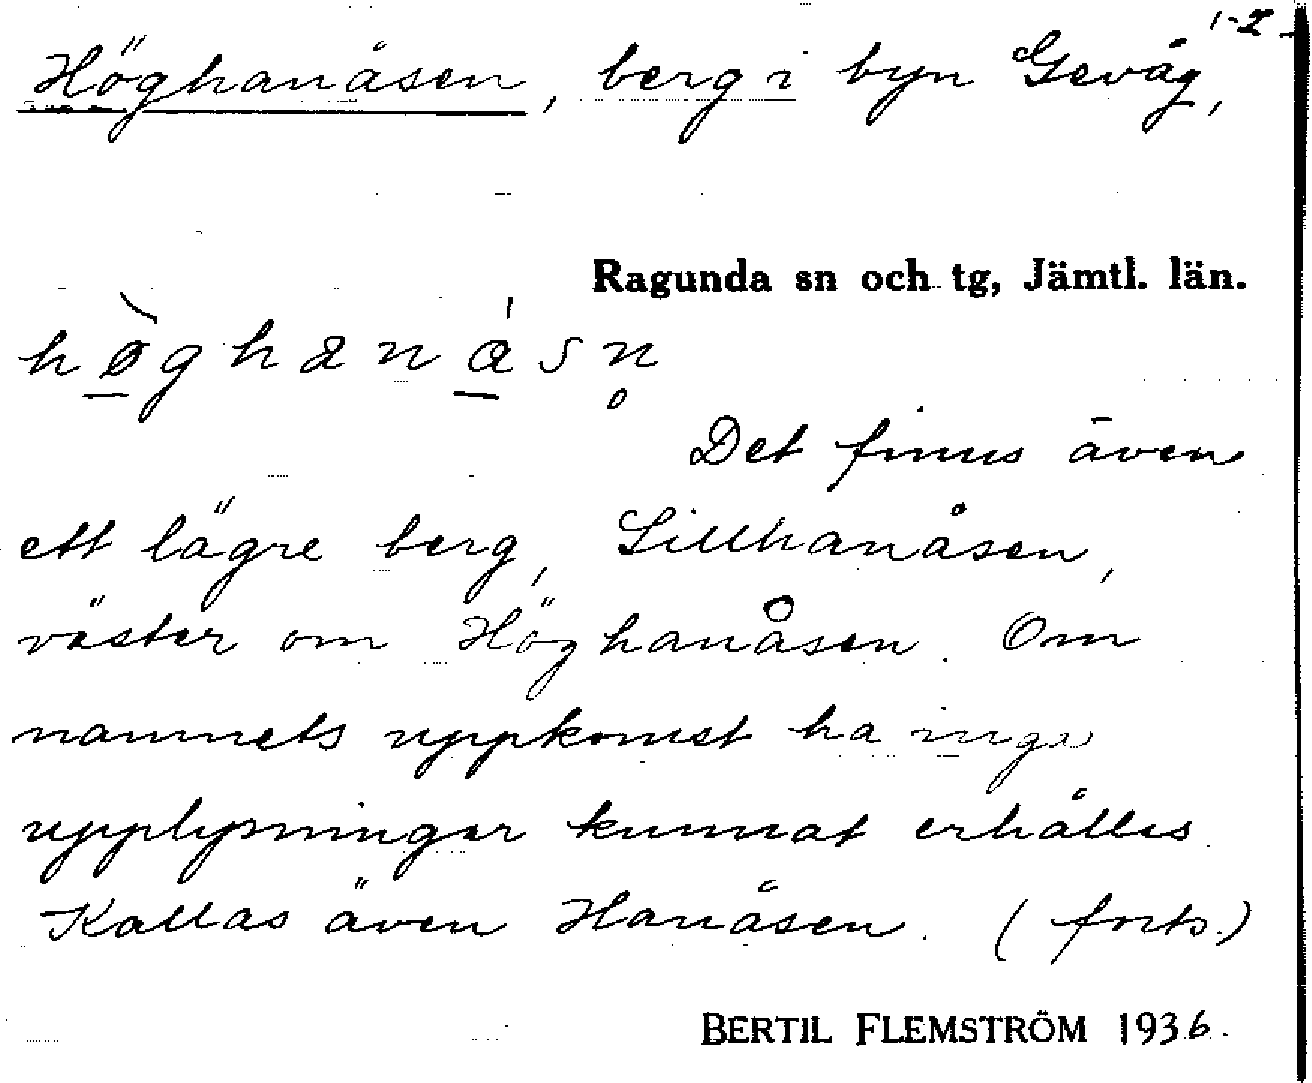 1-2
Höghanåsen, berg i byn Gevåg,
Ragunda sn och tg, Jämtl. län.
hø̀ghanásn̥
Det finns även
ett lägre berg, Lillhanåsen,
väster om Höghanåsen. Om
namnets uppkomst ha inga
upplysningar kunnat erhålles.
Kallas även Hanåsen. (forts.)
BERTIL FLEMSTRÖM 1936.